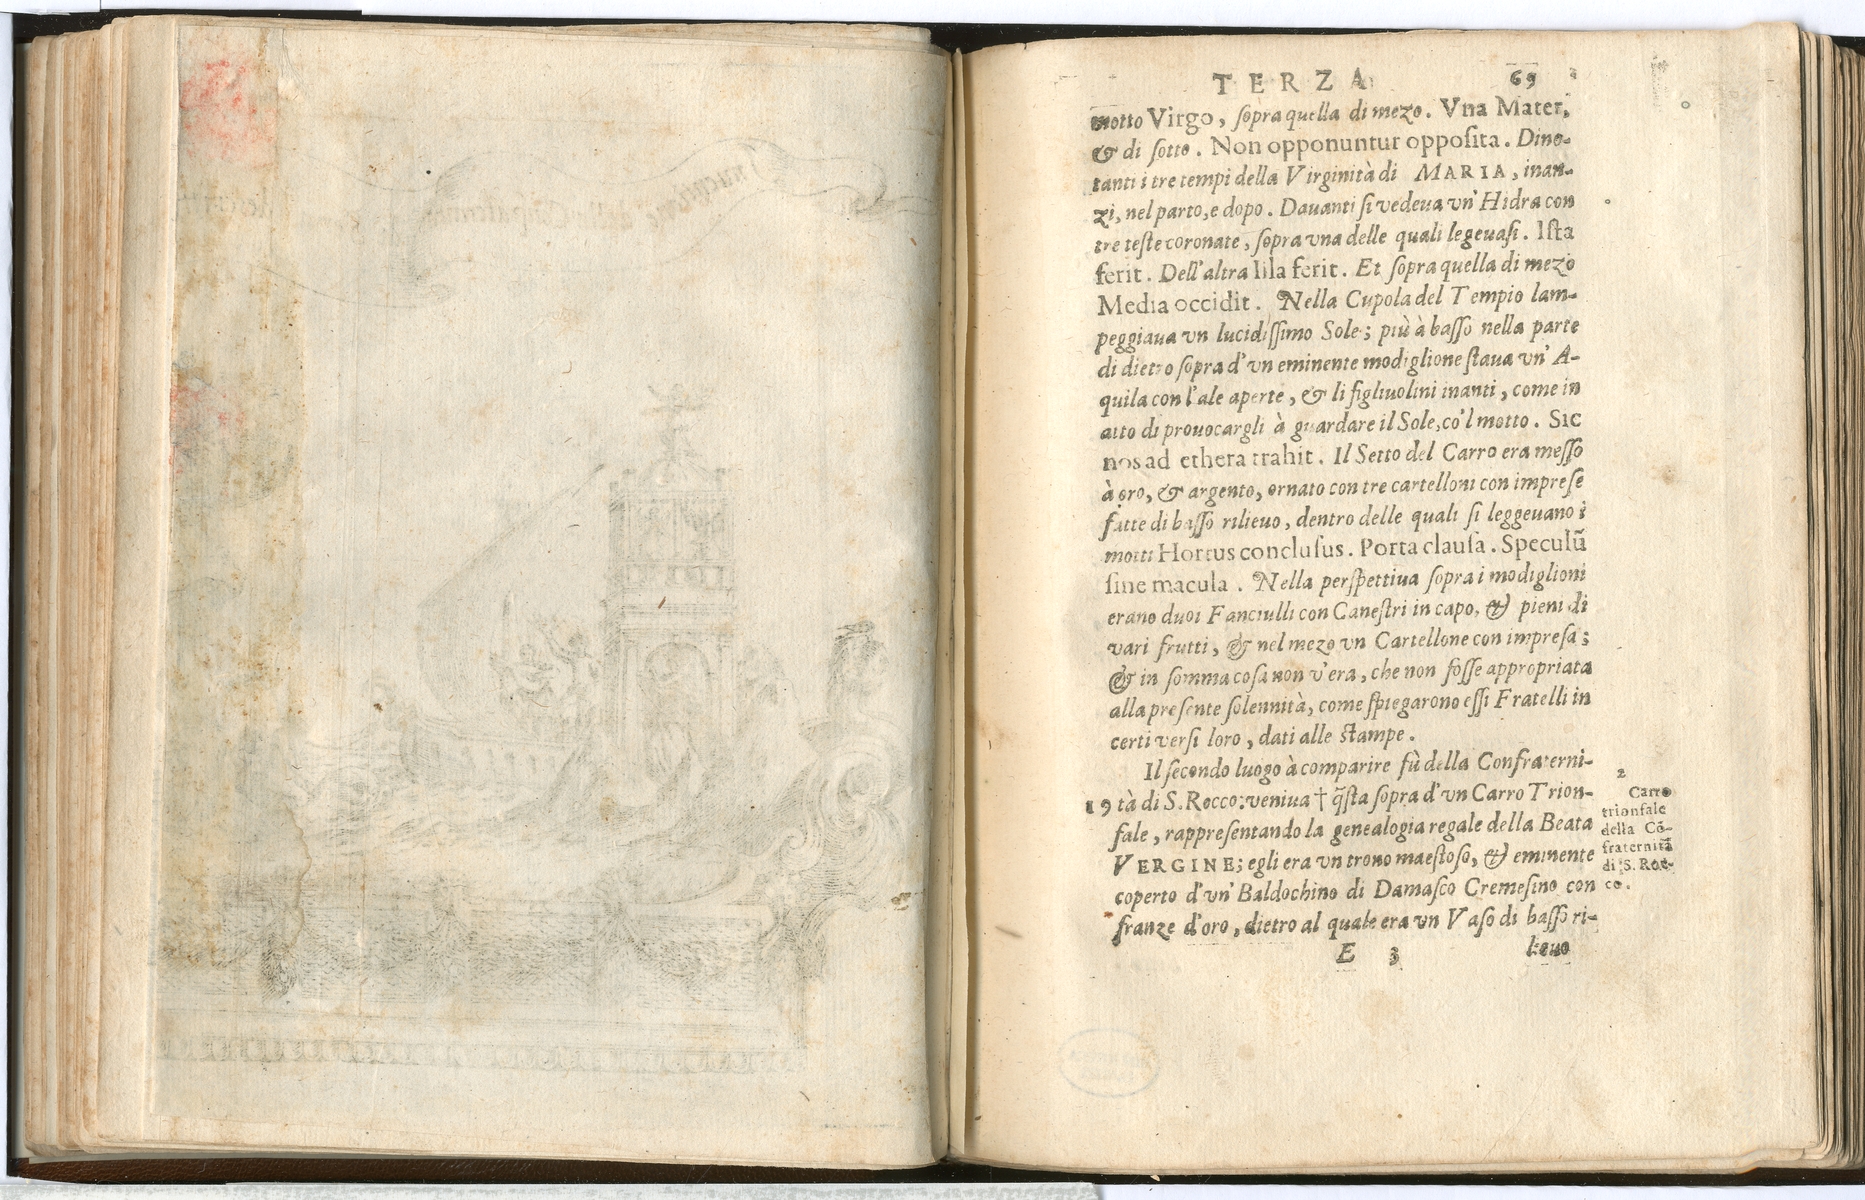 TERZA 69
motto Virgo, ſopra quella di mezo. Vna Mater,
& di ſotto. Non opponuntur oppoſita. Dino-
tanti i tre tempi della Virginità di MARIA, inan-
zi, nel parto, e dopo. Dauanti ſi vedeua vn' Hidra con
tre teſte coronate, ſopra vna delle quali legeuaſi. Iſta
ferit. Dell'altra Illa ferit. Et ſopra quella di mezo
Media occidit. Nella Cupola del Tempio lam-
peggiaua vn lucidiſſimo Sole; più à baſſo nella parte
di dietro ſopra d'vn eminente modiglione ſtaua vn' A-
quila con l'ale aperte, & li figliuolini inanti, come in
atto di prouocargli à guardare il Sole, co'l motto. Sic
nos ad ethera trahit. Il Setto del Carro era meſſo
à oro, & argento, ornato con tre cartelloni con impreſe
fatte di baſſo rilieuo, dentro delle quali ſi leggeuano i
motti Hortus concluſus. Porta clauſa. Speculũ
ſine macula. Nella perſpettiua ſopra i modiglioni
erano duoi Fanciulli con Caneſtri in capo, & pieni di
vari frutti, & nel mezo vn Cartellone con impreſa;
& in ſomma coſa non v'era, che non foſſe appropriata
alla preſente ſolennità, come ſpiegarono eſſi Fratelli in
certi verſi loro, dati alle ſtampe.
Il ſecondo luogo à comparire fù della Confraterni-
19 tà di S. Rocco: veniua † q̃ſta ſopra d'vn Carro Trion-
fale, rappreſentando la genealogia regale della Beata
VERGINE; egli era vn trono maeſtoſo, & eminente
coperto d'vn' Baldochino di Damaſco Cremeſino con
franze d'oro, dietro al quale era vn Vaſo di baſſo ri-
E 3 lieuo
2
Carro
trionfale
della Cõ-
fraternità
di S. Roc-
co.